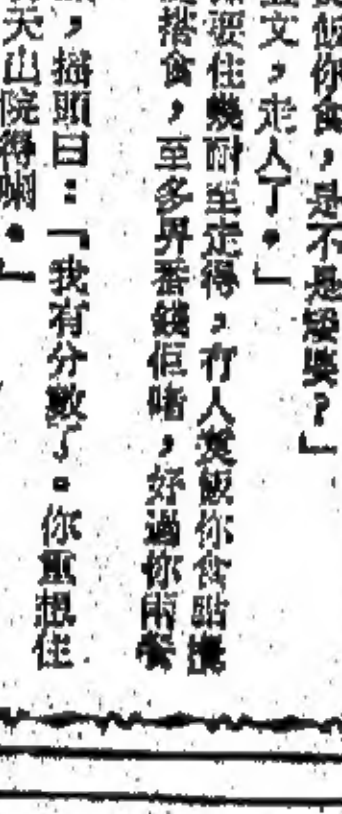 飯你食，是不是發噗？」
文，走人了。」
住幾耐至走得，冇人煲飯你食點攪
搭食，至多畀番錢佢啫，好過你兩餐
，搖頭曰：「我有分數了。你重想住
天山院得喇。」